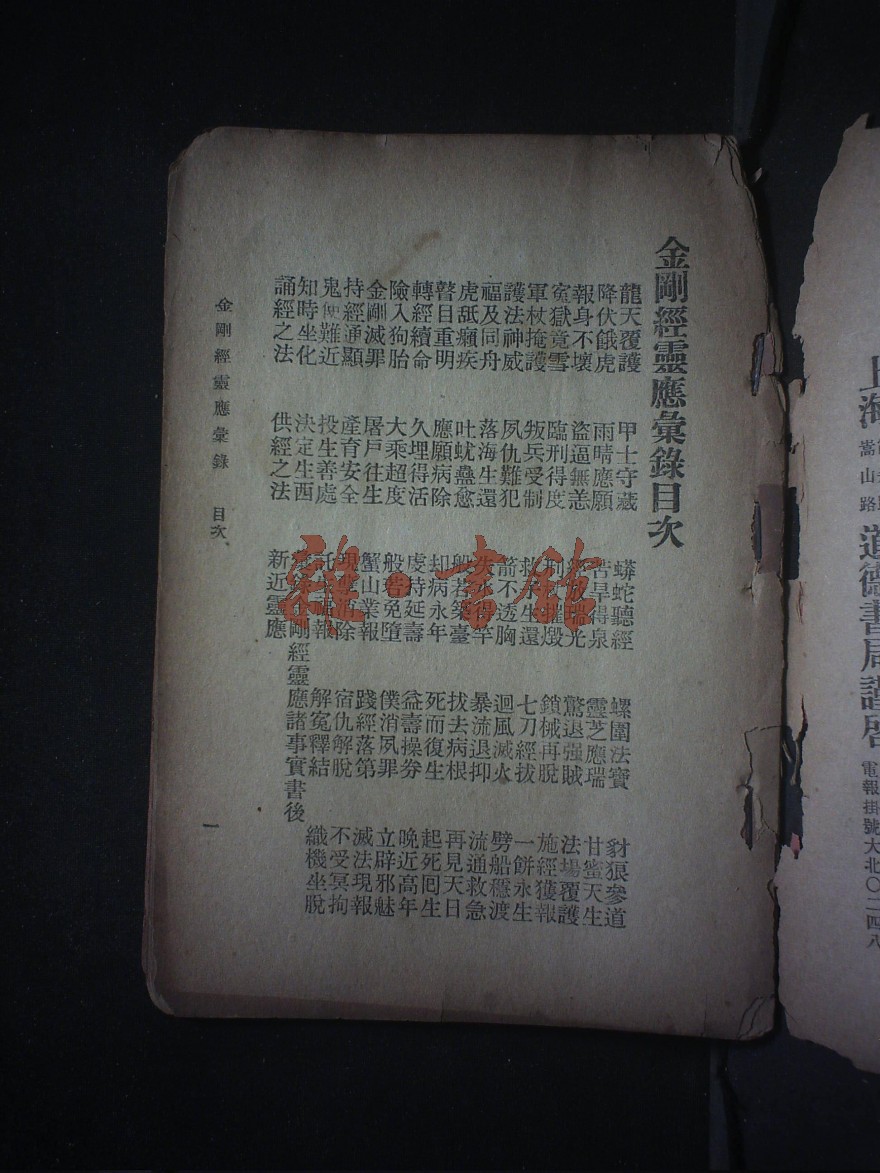 上海
嵩山路
道德書局謹啓
電報掛號大北〇二四八
金剛經靈應彙錄目次
龍天覆護 甲士守藏 蟒蛇聽經 螺圍法寶 豺狼參道
降伏餓虎 雨晴應願 苦旱得泉 靈芝應瑞 甘蜜天生
報身不壞 盜逼無恙 經放瑞光 驚退强賊 法場覆護
冤獄竟雪 臨刑得度 刑 摧燬 鎖械再脫 施經獲報
軍杖掩護 叛兵受制 救 生還 七刀經拔 一餅永生
護法神威 夙仇難犯 箭不透胸 迴風滅火 劈船穩渡
福及同舟 落海生還 失水得竿 暴流退抑 流通救急
虎舐癩疾 吐蚘蠱愈 般若築臺 拔去病根 再見天日
瞽目重明 應願病除 却病永年 死而復生 起死囘生
轉經續命 久埋得活 虔持延壽 益壽操券 晚近高年
險入狗胎 大乘超度 般若免墮 僕消夙罪 立辟邪魅
金剛滅罪 屠戶往生 蟹山業報 踐經落第 滅法現報
持經通顯 產育安全 現 除 宿仇解脫 不受冥拘
鬼使難近 投生善處 託 報 解冤釋結 織機坐脫
知時坐化 決定生西 剛經靈應諸事實書後
誦經之法 供經之法 新近靈應
金剛經靈應彙錄 目次
一
雜·書館